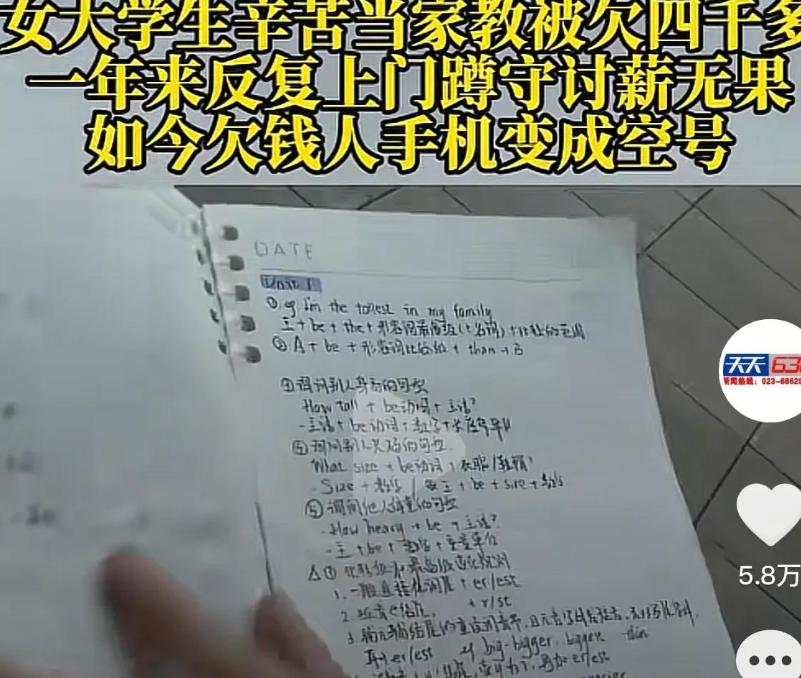 女大学生辛苦当家教被欠四千多
一年来反复上门蹲守讨薪无果
如今欠钱人手机变成空号
DATE
Unit 1
① eg im the tallest in my family
主+be+the+形容词最高级(+名词)+比较的范围
② A+be+形容词比较级+than+B
③ 询问别人身高的句型
How tall + be动词+主语?
-主语+be动词+数字+长度单位
④ 询问别人尺码的句型
What size + be动词+衣服/鞋帽?
- Size + 数字 / 主+be+size+数字
⑤ 询问他人体重的句型
-How heavy + be + 主语?
-主+be+数字+重量单位
△① 比较级和最高级变化规则
1. 一般直接在词尾+er/est
2. +r/st
3.
er/est big-bigger
er/est
天天630
新闻热线:023-6862
5.8万